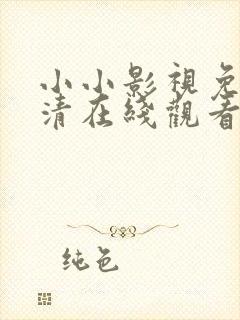 小小影視免
清在綫觀看
纯色